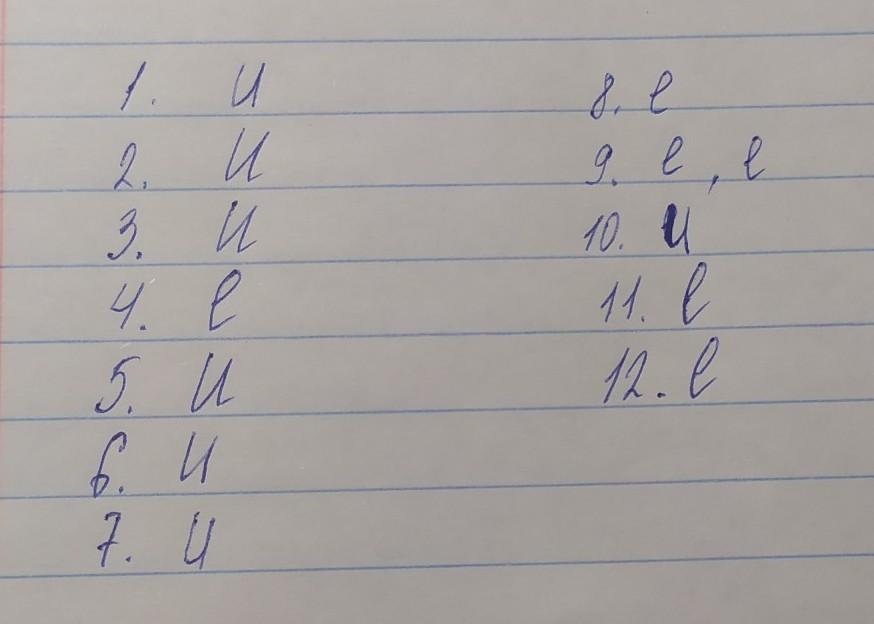 1. и
2. и
3. и
4. е
5. и
6. и
7. и
8. е
9. е, е
10. и
11. е
12. е